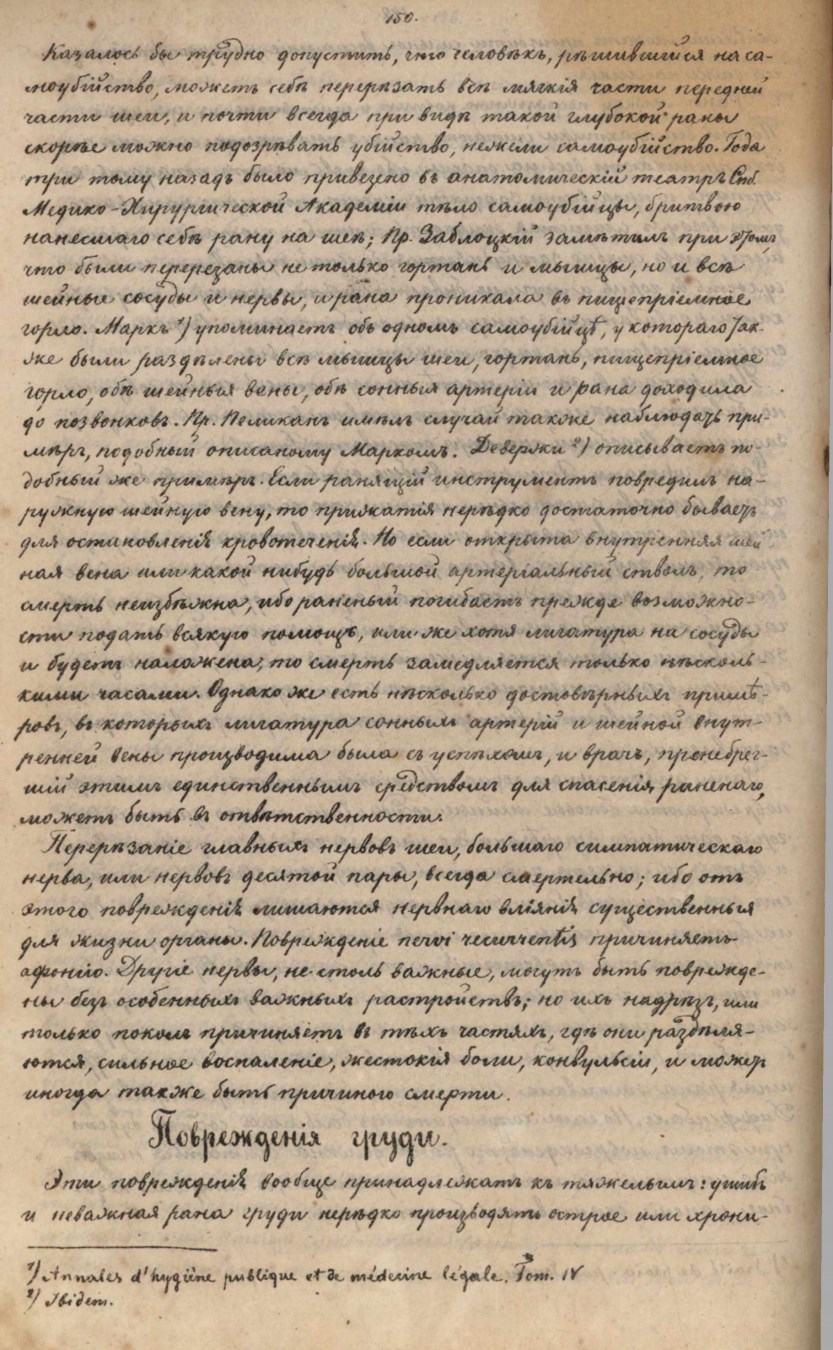 150.
Казалось бы трудно допустить, что человѣкъ, рѣшившийся на са-
моубійство, можетъ себѣ перерѣзать всѣ мягкія части передней
части шеи, и почти всегда при видѣ такой глубокой раны
скорѣе можно подозрѣвать убійство, нежели самоубійство. Года
три тому назадъ было привезено въ анатомическій театръ Спб.
Медико-Хирургической Академіи тѣло самоубійцы, бритвою
нанесшаго себѣ рану на шеѣ; Пр. Заблоцкій замѣтилъ при этомъ,
что были перерезаны не только гортань и мышцы, но и всѣ
шейные сосуды и нервы, и рана проникала въ пищепріемное
горло. Маркъ ¹) упоминаетъ объ одномъ самоубійцѣ, у котораго так-
же были раздѣлены всѣ мышцы шеи, гортань, пищепріемное
горло, обѣ шейныя вены, обѣ сонныя артеріи и рана доходила
до позвонковъ. Пр. Пеликанъ имѣлъ случай также наблюдать при-
мѣръ, подобный описаному Маркомъ. Девержи ²) описываетъ по-
добный же примѣръ. Если ранящій инструментъ повредилъ на-
ружную шейную вену, то прижатія нерѣдко достаточно бываетъ
для остановленія кровотеченія. Но если открыта внутренняя шей
ная вена или какой нибудь большой артеріальный стволъ, то
смерть неизбѣжна, ибо раненый погибаетъ прежде возможно-
сти подать всякую помощь, или же хотя лигатура на сосуды
и будетъ наложена, то смерть замедляется только нѣсколь-
кими часами. Однако же есть нѣсколько достовѣрныхъ примѣ-
ровъ, въ которыхъ лигатура сонныхъ артерій и шейной внут-
ренней вены производима была съ успѣхомъ, и врачъ, пренебрег-
шій этимъ единственнымъ средствомъ для спасенія раненаго,
можетъ быть въ отвѣтственности.
Перерѣзаніе главныхъ нервовъ шеи, большаго симпатическаго
нерва, или нервовъ десятой пары, всегда смертельно; ибо отъ
этого поврежденія лишаются нервнаго вліянія существенныя
для жизни органы. Поврежденіе nervi recurrentis причиняетъ
афонію. Другіе нервы, не столь важные, могутъ быть поврежде-
ны безъ особенныхъ важныхъ растройствъ; но ихъ надрѣзъ, или
только поколъ причиняетъ въ тѣхъ частяхъ, гдѣ они раздѣля-
ются, сильное воспаленіе, жестокія боли, конвульсіи, и можетъ
иногда также быть причиною смерти.
Поврежденія груди.
Эти поврежденія вообще принадлежатъ къ тяжелымъ: ушибъ
и неважная рана груди нерѣдко производятъ острое или хрони-
¹) Annales d'hygiène publique et de médecine légale. Tom. IV
²) Ibidem.